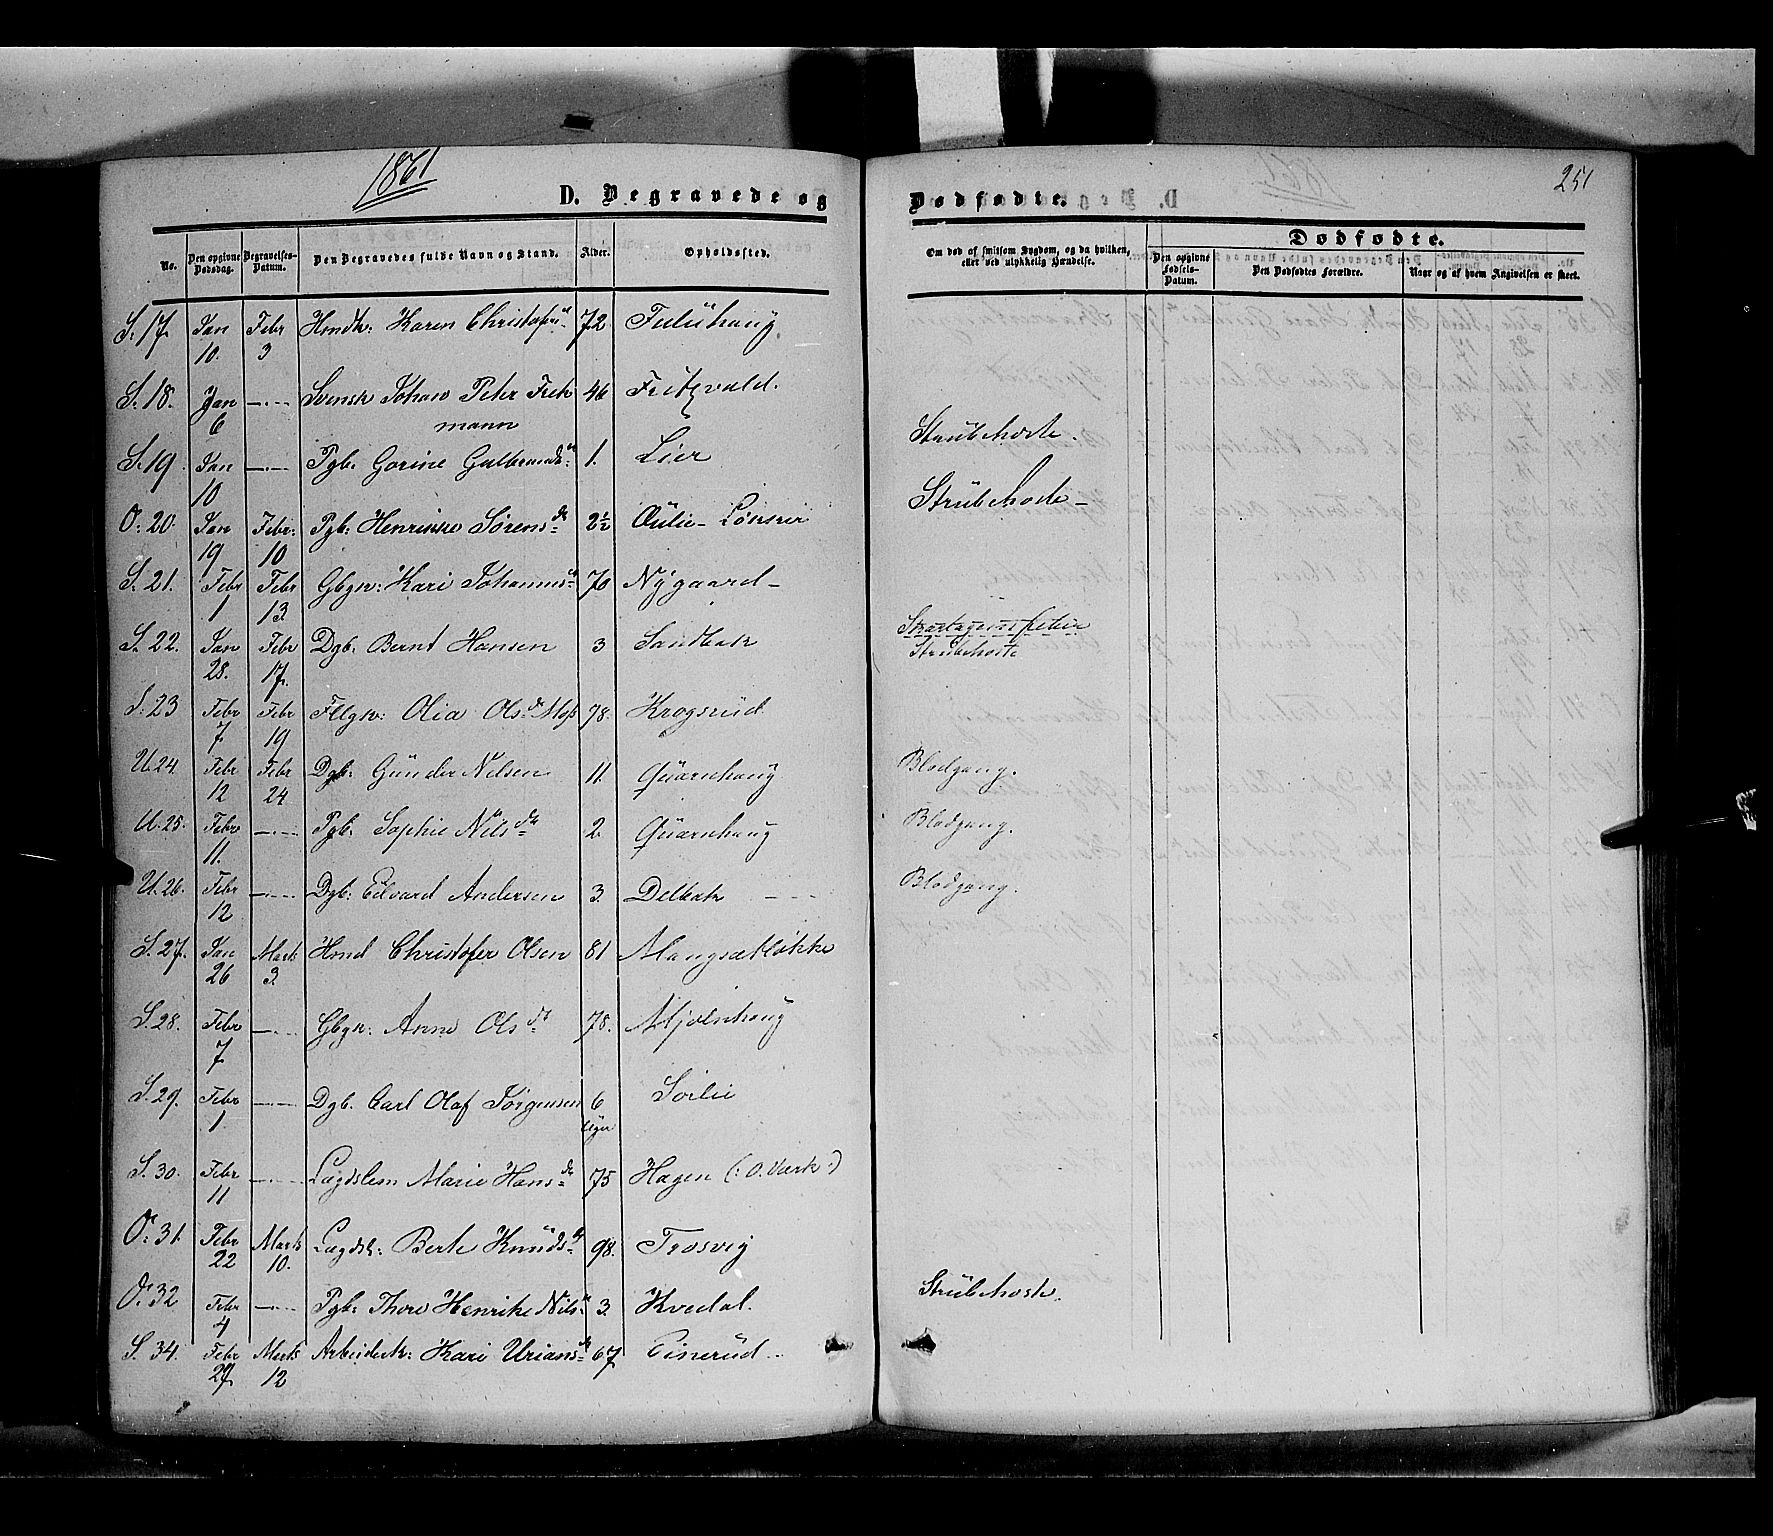 1861
251
D. Begravede og Dødfødte.
No. Den opgivne Dødsdag. Begravelses-Datum. Den Begravedes fulde Navn og Stand. Alder. Opholdssted. Om død af smitsom Sygdom, og da hvilken, eller ved ulykkelig Hændelse. Dødfødte.
Den opgivne Fødsels-Datum. Den Dødfødtes Forældre. Naar og af hvem Angivelsen er skeet.
S. 17. Jan 10. Febr 3 Hmdk: Karen Christofersd 72
S. 18. Jan 6 —"— Svensk Johan Peter Frekmann 46 Fritzvold.
S. 19. Jan 10 —"— Pgb. Gorine Gulbrandsd 1. Lier Strubehoste.
O. 20. Jan 19 Febr: 10 Pgb: Henrikke Sørensd 2½ Lønner Strubehoste
S. 21. Febr 1 Febr 13. Gbgr: Kari Johannesd 70 Nygaard
S. 22. Jan 28. Febr 17. Dgb. Bernt Hansen 3 Sandbak Skarlagensfeber Strubehoste
S. 23 Febr 7 Febr 19 Olia Olsd Moss 78. Krogsrud
U. 24. Febr 12 Febr 24 Dgb: Gunder Nilsen 11. Quarnhaug Blodgang.
U. 25. Febr 11. —"— Pgb. Sophie Nilsd 2. Quarnhaug Blodgang.
U. 26. Febr 12 —"— Dgb. Edvard Andersen 3. Delbak Blodgang.
S. 27. Jan 26 Marts 3. Hmd Christofer Olsen 81 Mangsetløkke
S. 28. Febr 7 —"— Gbgr: Anne Olsd 78. Mjølnhaug
S. 29. Febr 1. —"— Dgb. Carl Olaf Jørgensen 6 Uger Sørlie
S. 30. Febr 11 —"— Lægdslem Marie Hansd 75 Hagen (: O. Værk :)
O. 31. Febr 22 Marts 10. Lægdsl: Berte Knudsd 98. Trosvig
O. 32 Febr 4 —"— Pgb: Thore Henrikke Nilsd 3. Kvedal. Strubehoste.
S. 34. Febr 27 Marts 12 Arbeiderk: Kari Uriansd 67 Einerud